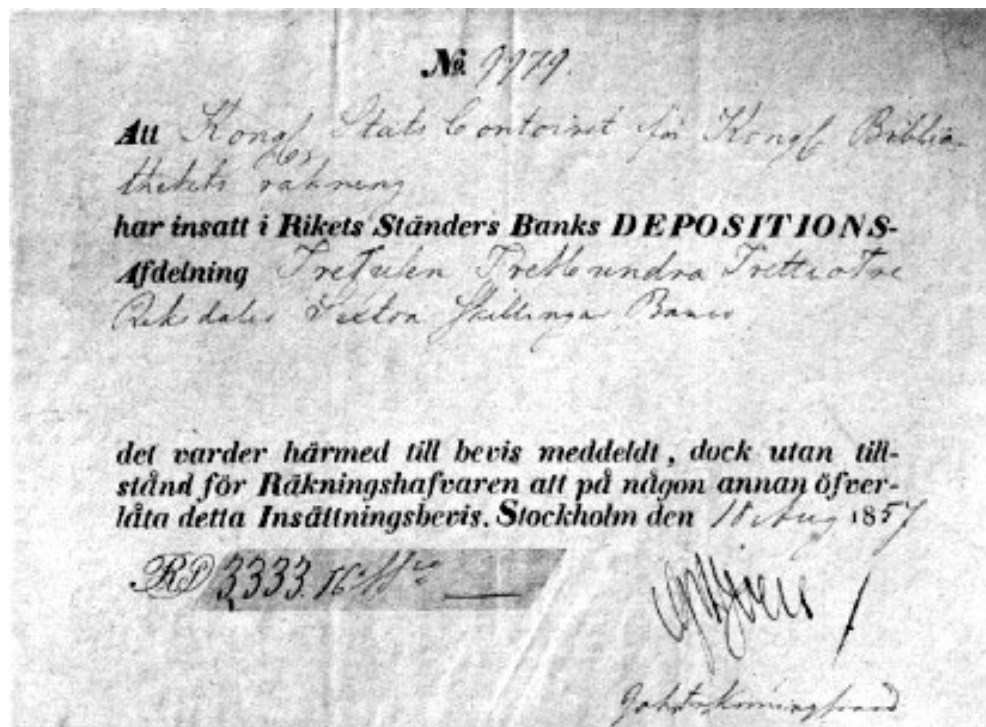 No 9979.
Att Kongl Stats Contoiret för Kongl Biblio-
thekets räkning
har insatt i Rikets Ständers Banks DEPOSITIONS-
Afdelning Tretusen Trehundra Trettiotre
Riksdaler Sexton Skillingar Banco
det varder härmed till bevis meddeldt, dock utan till-
stånd för Räkningshafvaren att på någon annan öfver-
låta detta Insättningsbevis. Stockholm den 18 Aug 1857
RD 3,333.16